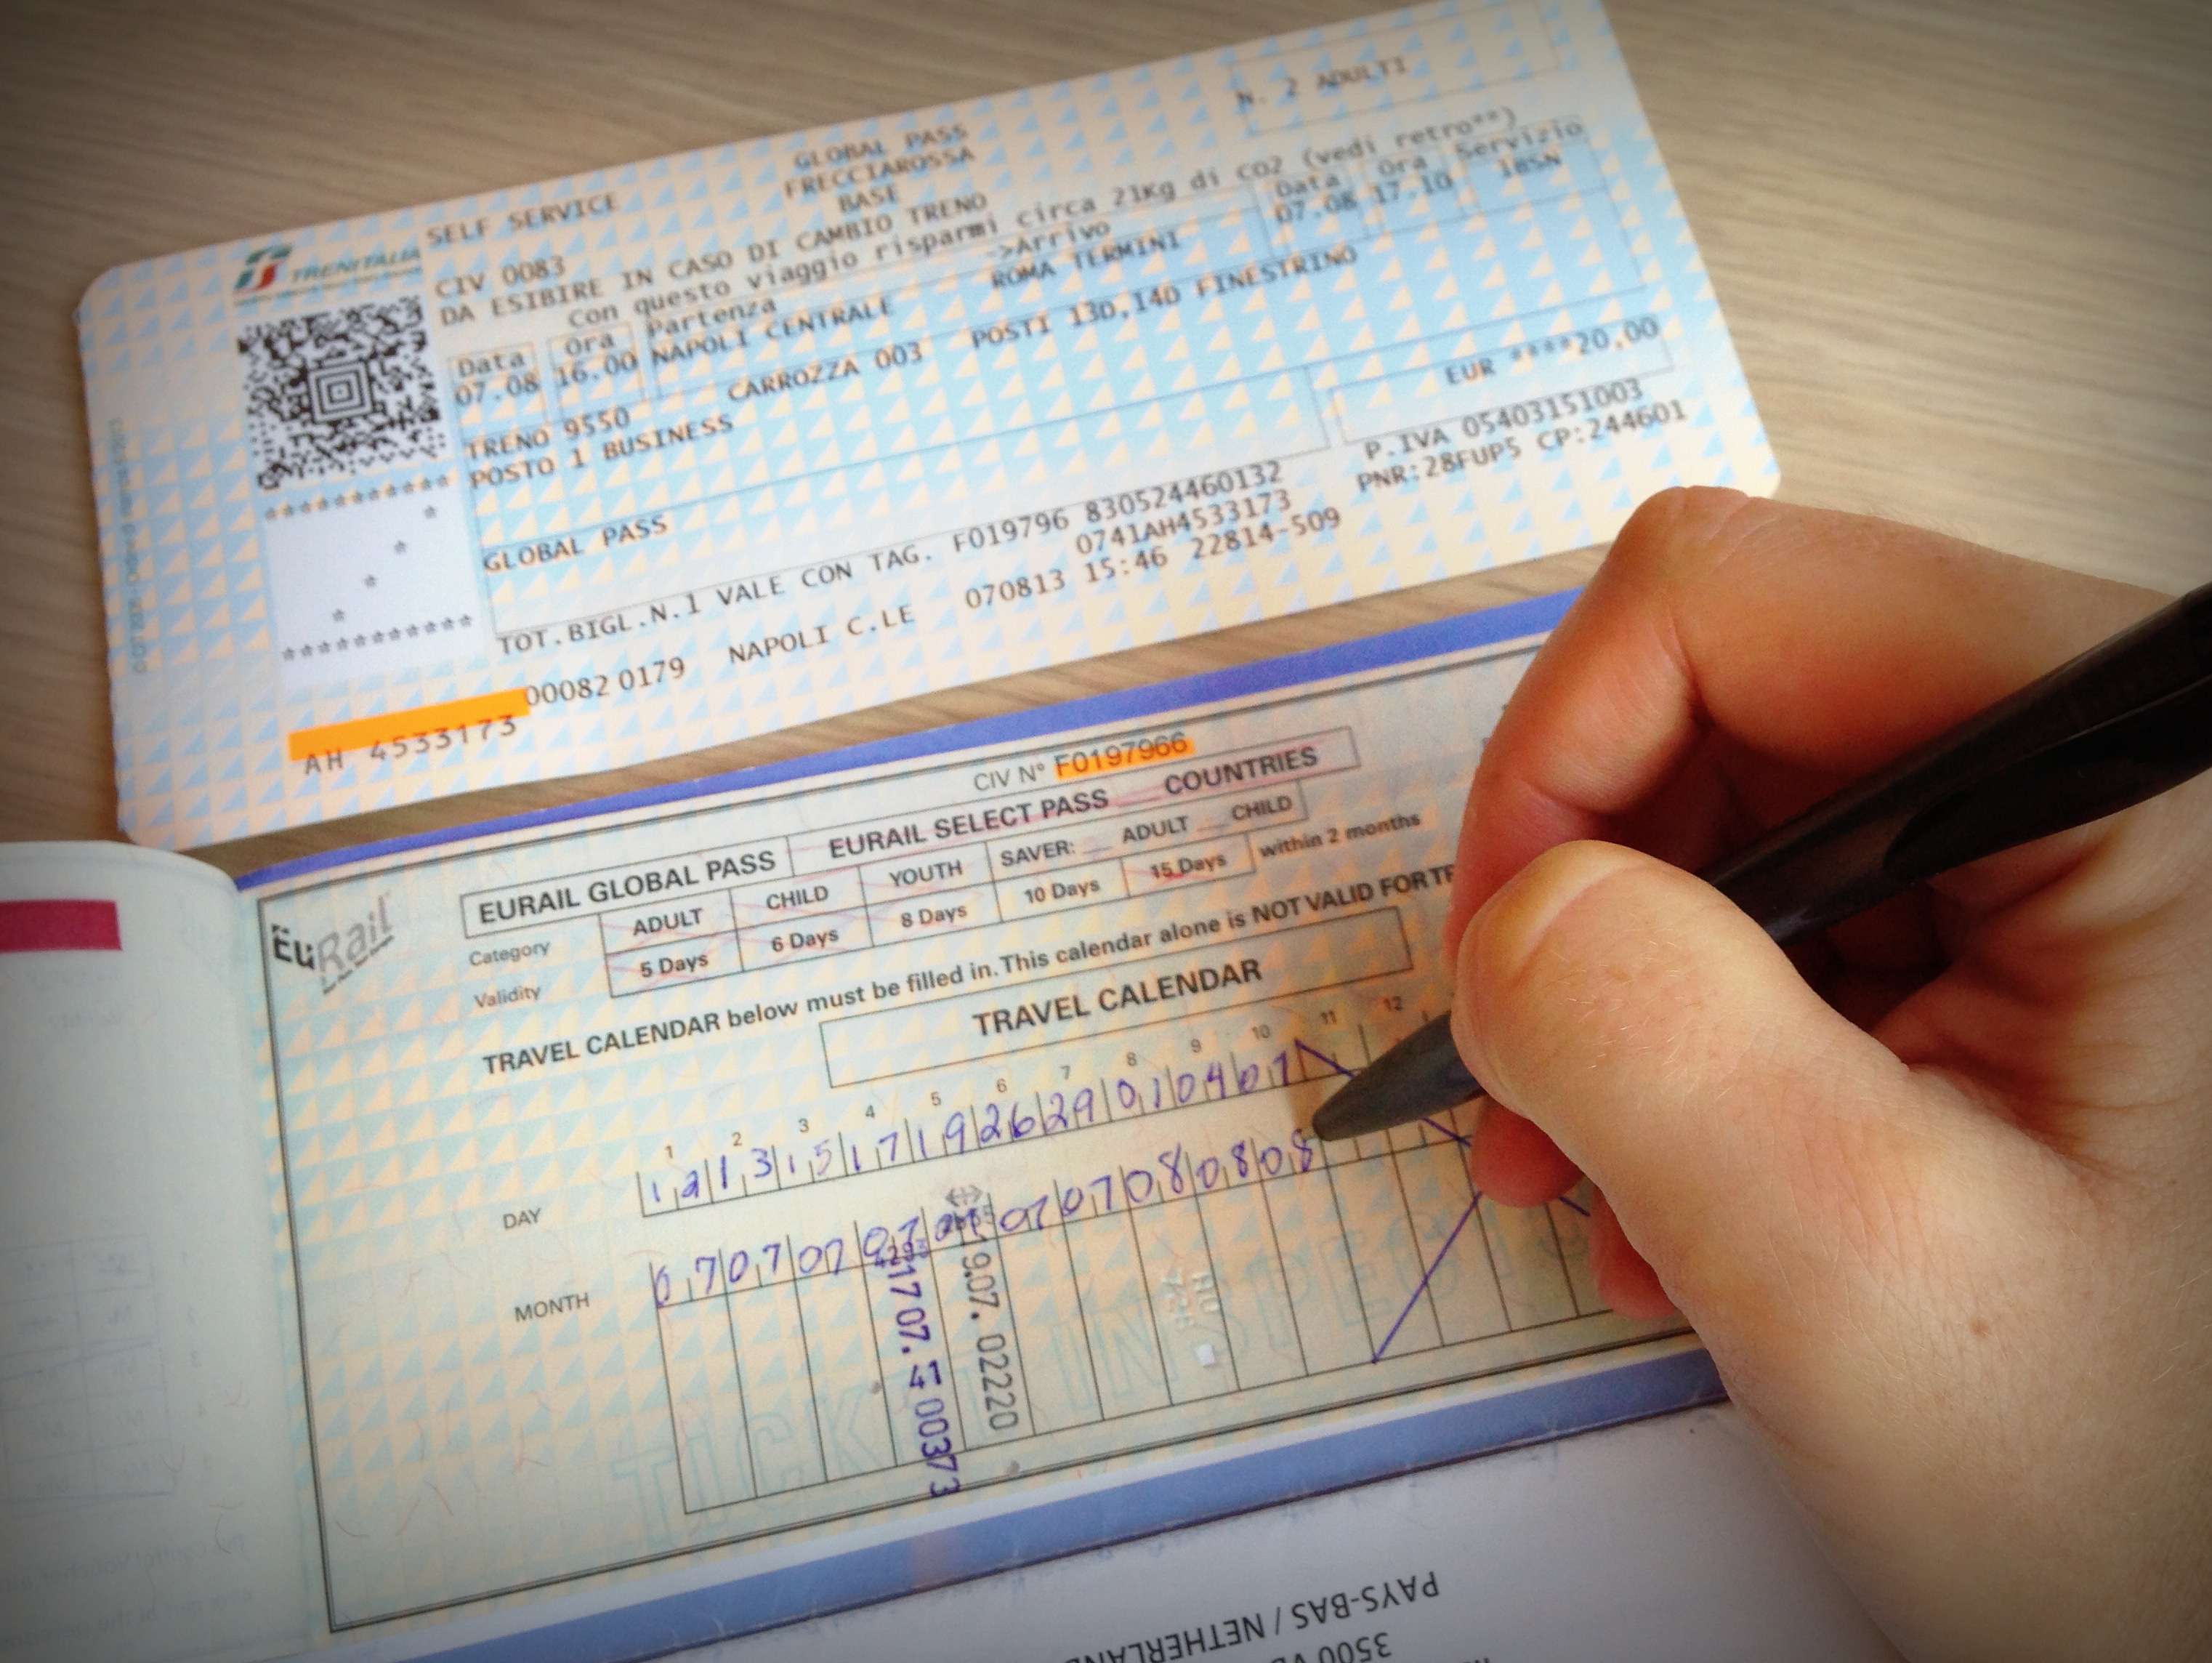 N. 2 ADULTI
GLOBAL PASS
FRECCIAROSSA
BASE
TRENITALIA
SELF SERVICE
CIV 0083
DA ESIBIRE IN CASO DI CAMBIO TRENO
Con questo viaggio risparmi circa 21Kg di CO2 (vedi retro**)
Data Ora Partenza ->Arrivo Data Ora Servizio
07.08 16.00 NAPOLI CENTRALE ROMA TERMINI 07.08 17.10
TRENO 9550 CARROZZA 003 POSTI 13D,14D FINESTRINO
POSTO 1 BUSINESS
EUR ****20,00
GLOBAL PASS
P.IVA 05403151003
PNR:28FUP5 CP:244601
TOT.BIGL.N.1 VALE CON TAG. F019796 830524460132
0741AH4533173
00082 0179 NAPOLI C.LE 070813 15:46 22814-509
AH 4533173
CIV N° F0197966
EuRail
EURAIL GLOBAL PASS EURAIL SELECT PASS __ COUNTRIES
Category ADULT CHILD YOUTH SAVER: __ ADULT __ CHILD
Validity 5 Days 6 Days 8 Days 10 Days 15 Days within 2 months
TRAVEL CALENDAR below must be filled in. This calendar alone is NOT VALID FOR
TRAVEL CALENDAR
1 2 3 4 5 6 7 8 9 10 11 12
DAY 12 13 15 17 19 26 29 01 04 07
MONTH 07 07 07 07 07 07 07 08 08 08
17 07. 00373
907. 02220
TICKET INSPECTION
PAYS-BAS / NETHERLAN
3500